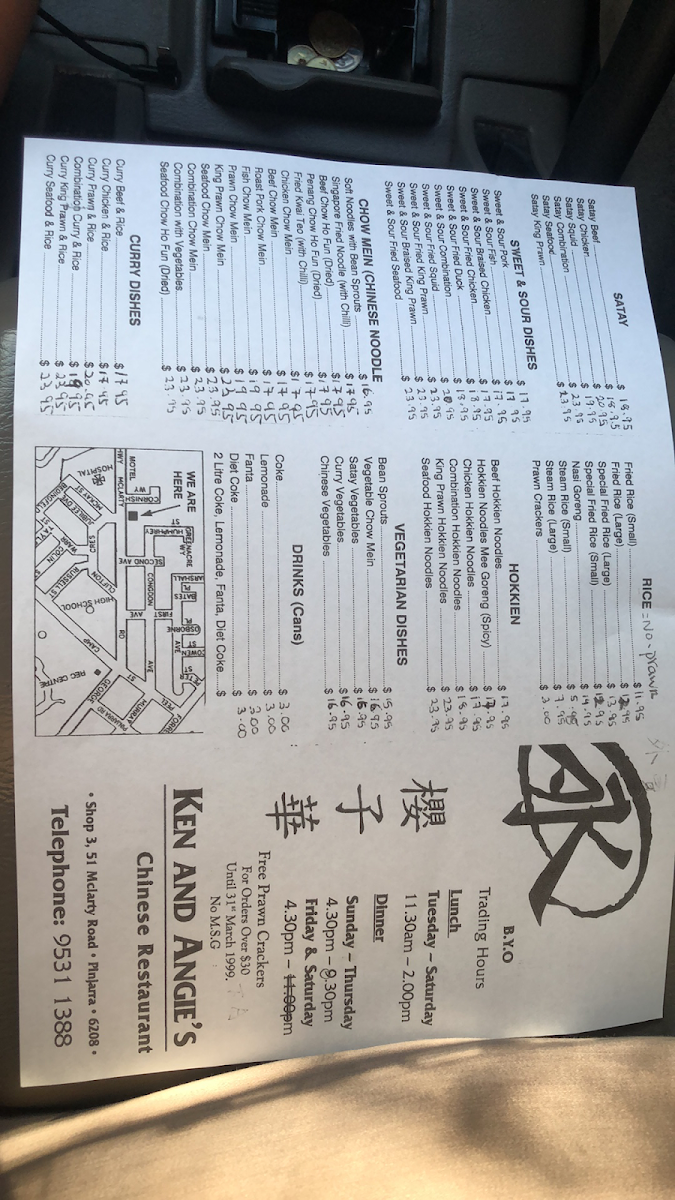 SATAY
Satay Beef $ 18.95
Satay Chicken $ 18.95
Satay Squid $ 20.95
Satay Combination $ 19.95
Satay Seafood $ 23.95
Satay King Prawn $ 23.95
SWEET & SOUR DISHES
Sweet & Sour Pork $ 17.95
Sweet & Sour Fish $ 17.95
Sweet & Sour Braised Chicken $ 17.95
Sweet & Sour Fried Chicken $ 17.95
Sweet & Sour Fried Duck $ 18.95
Sweet & Sour Combination $ 18.95
Sweet & Sour Fried Squid $ 20.95
Sweet & Sour Fried King Prawn $ 23.95
Sweet & Sour Braised King Prawn $ 23.95
Sweet & Sour Fried Seafood $ 23.95
CHOW MEIN (CHINESE NOODLE
Soft Noodles with Bean Sprouts $ 16.95
Singapore Fried Noodle (with Chilli) $ 17.95
Beef Chow Ho Fun (Dried) $ 17.95
Penang Chow Ho Fun (Dried) $ 17.95
Fried Kwai Teo (with Chilli) $ 17.95
Chicken Chow Mein $ 17.95
Beef Chow Mein $ 17.95
Roast Pork Chow Mein $ 17.95
Fish Chow Mein $ 19.95
Prawn Chow Mein $ 19.95
King Prawn Chow Mein $ 23.95
Seafood Chow Mein $ 23.95
Combination Chow Mein $ 23.95
Combination with Vegetables $ 23.95
Seafood Chow Ho Fun (Dried) $ 23.95
CURRY DISHES
Curry Beef & Rice $ 17.95
Curry Chicken & Rice $ 17.95
Curry Prawn & Rice $ 20.95
Combination Curry & Rice $ 19.95
Curry King Prawn & Rice $ 23.95
Curry Seafood & Rice $ 23.95
RICE = No-prawn
Fried Rice (Small) $ 11.95
Fried Rice (Large) $ 12.95
Special Fried Rice (Large) $ 13.95
Special Fried Rice (Small) $ 12.95
Nasi Goreng $ 14.95
Steam Rice (Small) $ 5.95
Steam Rice (Large) $ 7.95
Prawn Crackers $ 3.00
HOKKIEN
Beef Hokkien Noodles $ 17.95
Hokkien Noodles Mee Goreng (Spicy) $ 17.95
Chicken Hokkien Noodles $ 17.95
Combination Hokkien Noodles $ 18.95
King Prawn Hokkien Noodles $ 23.95
Seafood Hokkien Noodles $ 23.95
VEGETARIAN DISHES
Bean Sprouts $ 15.95
Vegetable Chow Mein $ 16.95
Satay Vegetables $ 16.95
Curry Vegetables $ 16.95
Chinese Vegetables $ 16.95
DRINKS (Cans)
Coke $ 3.00
Lemonade $ 3.00
Fanta $ 3.00
Diet Coke $ 3.00
2 Litre Coke, Lemonade, Fanta, Diet Coke $
WE ARE HERE
MOTEL
CORNISH WY
HWY McLARTY
HOSPITAL
McKAY ST
JUBILEE
CRES
HUMPHREY ST
GREENACRE WY
SECOND AVE
MARSHALL
BATES PL
OSBORNE
COWEN ST
PETER
CONGDON AVE
FIRST AVE
RD
COLIN
RUSSELL ST
CLIFTON
HIGH SCHOOL
CAMP
REC CENTRE
GEORGE ST
MURRAY
PINJARRA RD
PEEL
FORREST
B.Y.O
Trading Hours
Lunch
Tuesday – Saturday
11.30am – 2.00pm
Dinner
Sunday – Thursday
4.30pm – 8.30pm
Friday & Saturday
4.30pm – 11.00pm
櫻子華
Free Prawn Crackers
For Orders Over $30
Until 31st March 1999.
No M.S.G
KEN AND ANGIE'S
Chinese Restaurant
• Shop 3, 51 Mclarty Road • Pinjarra • 6208 •
Telephone: 9531 1388